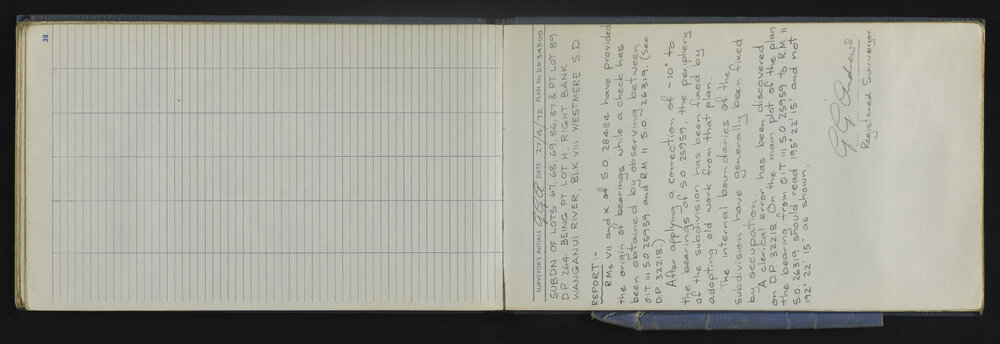 38
SURVEYOR'S INITIALS G.G.A. DATE 27/4/72 PLAN No. D.P. 34500
SUBDN OF LOTS 67, 68, 69, 86, 87 & PT LOT 89
D.P. 264 BEING PT LOT H, RIGHT BANK
WANGANUI RIVER, BLK VIII WESTMERE S.D.
REPORT:-
RMs VII and X of S.O. 28484 have provided
the origin of bearings while a check has
been obtained by observing between
O.I.T III S.O. 25959 and RM II S.O. 26319. (See
D.P. 32218.)
After applying a correction of -10" to
the bearings of S.O. 25959, the periphery
of the subdivision has been fixed by
adopting old work from that plan.
The internal boundaries of the
subdivision have generally been fixed
by occupation.
A clerical error has been discovered
on D.P. 32218. On the main plot of the plan
the bearing from O.I.T III S.O. 25959 to RM II
S.O. 26319 should read 195° 22' 15" and not
192° 22' 15" as shown.
G G Andrews
Registered Surveyor